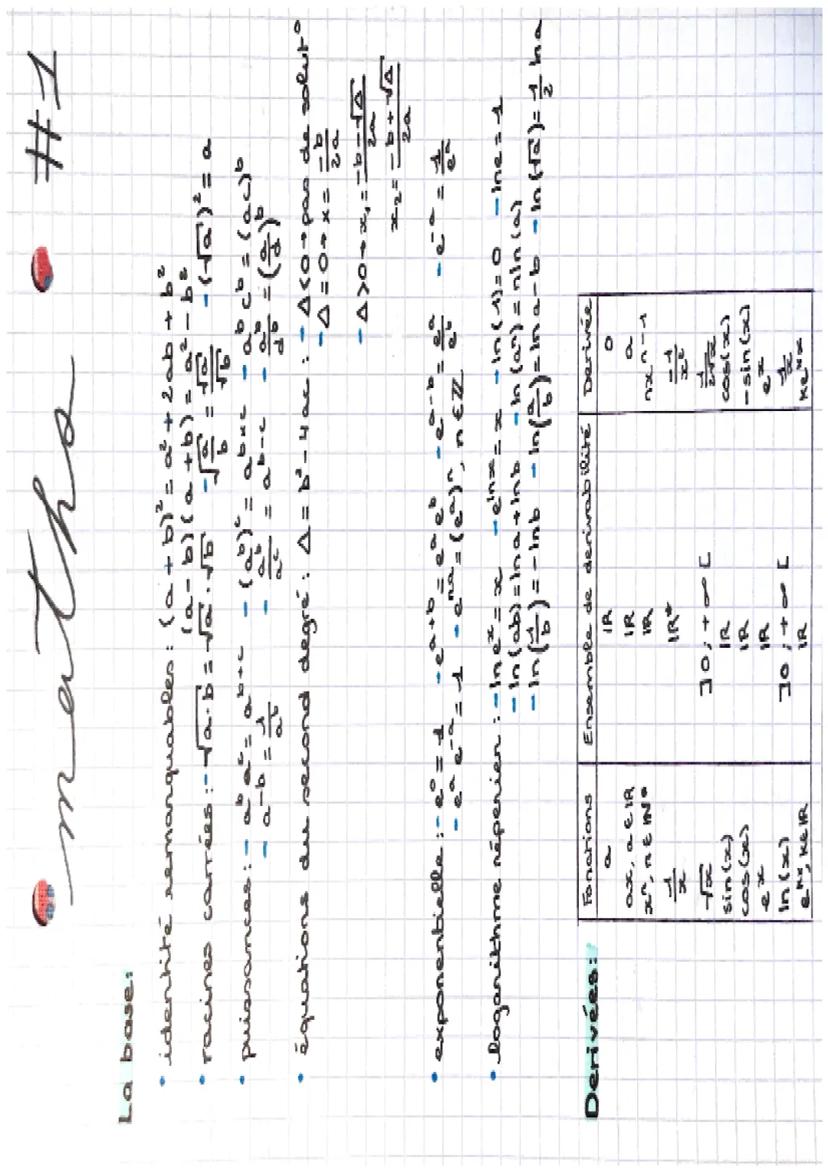 maths #1
La base:
• identité remarquables: (a + b)² = a² + 2ab + b²
(a - b)(a + b) = a² - b²
• racines carrées: - √a·b = √a · √b - √(a/b) = √a/√b - (√a)² = a
• puissances: - a^b a^c = a^(b+c) - (a^b)^c = a^(b×c) - a^b c^b = (ac)^b
- a^(-b) = 1/a^b - a^b/a^c = a^(b-c) - a^b/d^b = (a/d)^b
• équations du second degré: Δ = b² - 4ac : - Δ<0 → pas de solut°
- Δ = 0 → x = -b/2a
- Δ>0 → x₁ = (-b-√Δ)/2a
x₂ = (-b+√Δ)/2a
• exponentielle: - e⁰ = 1 - e^(a+b) = e^a e^b - e^(a-b) = e^a/e^b - e^(-a) = 1/e^a
- e^a e^(-a) = 1 - e^(na) = (e^a)^n, n ∈ ℤ
• logarithme néperien: - ln e^x = x - e^(ln x) = x - ln(1) = 0 - ln e = 1
- ln(ab) = ln a + ln b - ln(a^n) = n ln(a)
- ln(1/b) = - ln b - ln(a/b) = ln a - b - ln(√a) = 1/2 ln a
Derivées:
Fonctions Ensemble de derivabilité Derivée
a ℝ 0
ax, a ∈ ℝ ℝ a
x^n, n ∈ ℕ* ℝ nx^(n-1)
1/x ℝ* -1/x²
√x ]0; +∞[ 1/2√x
sin(x) ℝ cos(x)
cos(x) ℝ -sin(x)
e^x ℝ e^x
ln(x) ]0; +∞[ 1/x
e^(kx), k ∈ ℝ ℝ ke^(kx)